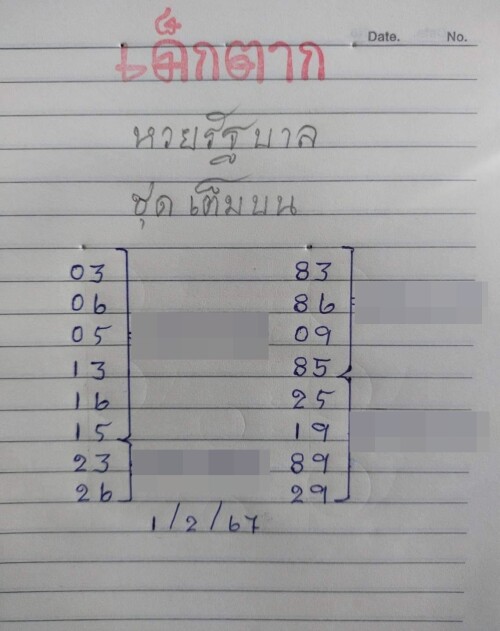 Date. No.
เด็กตาก
หวยรัฐบาล
ชุด เต็มบน
03 83
06 86
05 09
13 85
16 25
15 19
23 89
26 29
1/2/67